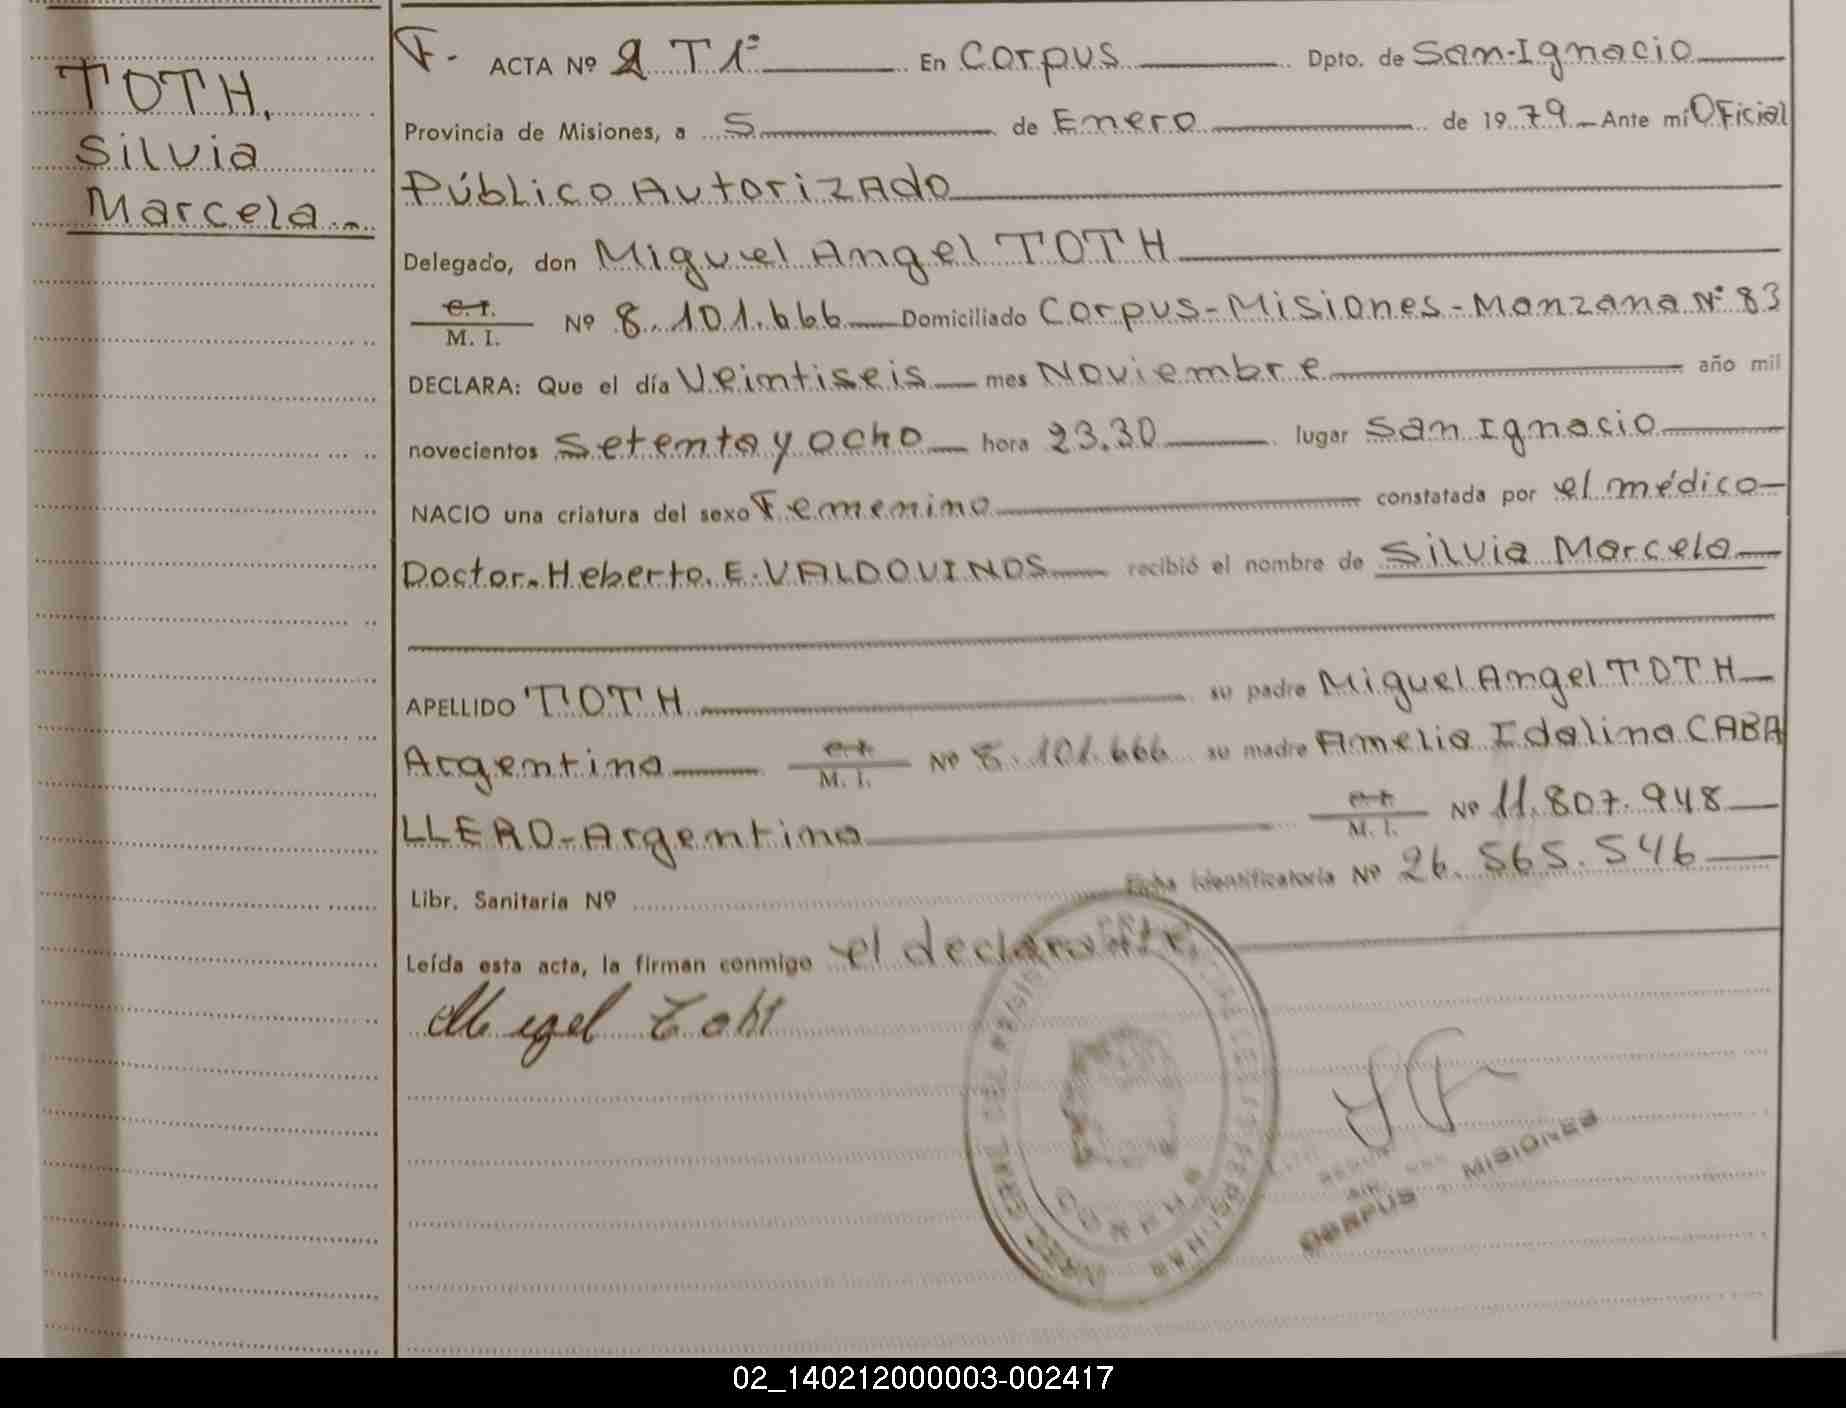 TOTH,
Silvia
Marcela
F. ACTA Nº 2 T 1º En Corpus Dpto. de San-Ignacio
Provincia de Misiones, a 5 de Enero de 1979 Ante mí Oficial
Público Autorizado
Delegado, don Miguel Angel TOTH
C.I. / M. I. Nº 8.101.666 Domiciliado Corpus-Misiones-Manzana Nº 83
DECLARA: Que el día Veintiseis mes Noviembre año mil
novecientos Setenta y ocho hora 23.30 lugar San Ignacio
NACIO una criatura del sexo Femenino constatada por el médico
Doctor. Heberto. E. VALDOVINOS recibió el nombre de Silvia Marcela
APELLIDO TOTH su padre Miguel Angel TOTH
Argentino M. I. Nº 8.101.666 su madre Amelia Idalina CABA
LLERO-Argentina M. I. Nº 11.807.948
Libr. Sanitaria Nº Ficha identificatoria Nº 26.565.546
Leída esta acta, la firman conmigo el declarante
Migel Toht
CORPUS MISIONES
02_140212000003-002417